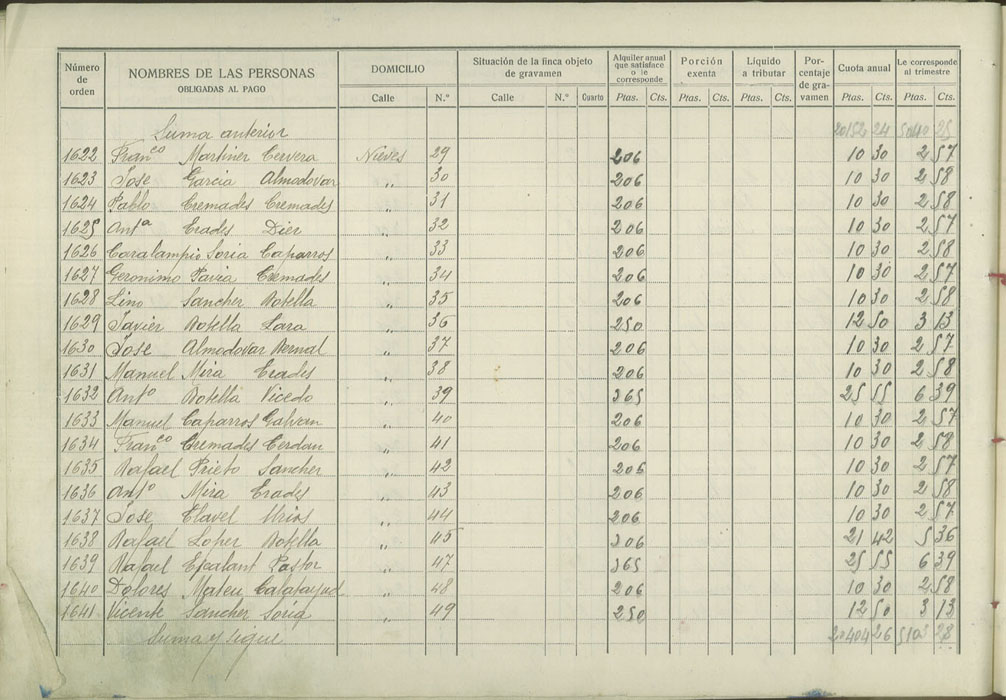 Número de orden NOMBRES DE LAS PERSONAS OBLIGADAS AL PAGO DOMICILIO Situación de la finca objeto de gravamen Alquiler anual que satisface o le corresponde Porción exenta Líquido a tributar Por-centaje de gra-vamen Cuota anual Le corresponde al trimestre
Calle N.º Calle N.º Cuarto Ptas. Cts. Ptas. Cts. Ptas. Cts. Ptas. Cts. Ptas. Cts.
Suma anterior 20152 24 5040 25
1622 Franco Martinez Cervera Nieves 29 206 10 30 2 57
1623 Jose Garcia Almodovar " 30 206 10 30 2 58
1624 Pablo Cremades Cremades " 31 206 10 30 2 58
1625 Anta Erades Diez " 32 206 10 30 2 57
1626 Caralampio Soria Caparros " 33 206 10 30 2 58
1627 Geronimo Pavia Cremades " 34 206 10 30 2 57
1628 Lino Sanchez Botella " 35 206 10 30 2 58
1629 Javier Botella Lara " 36 250 12 50 3 13
1630 Jose Almodovar Bernal " 37 206 10 30 2 57
1631 Manuel Mira Erades " 38 206 10 30 2 58
1632 Anto Botella Vicedo " 39 365 25 55 6 39
1633 Manuel Caparros Galvan " 40 206 10 30 2 57
1634 Franco Cremades Cerdan " 41 206 10 30 2 58
1635 Rafael Prieto Sanchez " 42 206 10 30 2 57
1636 Anto Mira Erades " 43 206 10 30 2 58
1637 Jose Clavel Urios " 44 206 10 30 2 57
1638 Rafael Lopez Botella " 45 306 21 42 5 36
1639 Rafael Escalant Pastor " 47 365 25 55 6 39
1640 Dolores Mateu Calatayud " 48 206 10 30 2 58
1641 Vicente Sanchez Soria " 49 250 12 50 3 13
Suma y sigue 20404 26 5103 28